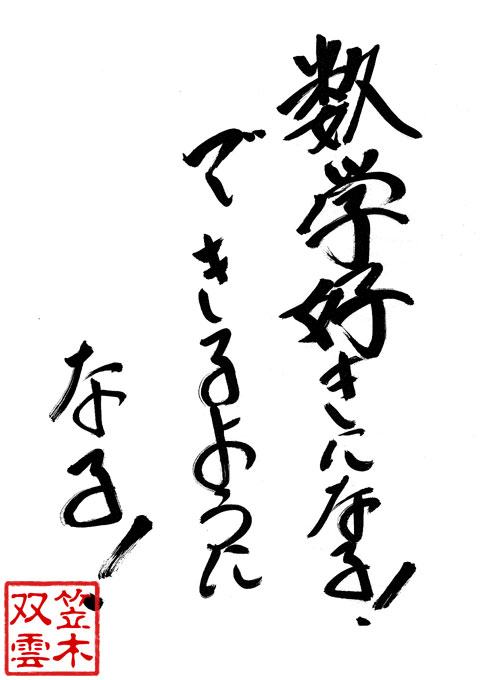 数学好きになる!
できるように
なる!
笠木
双雲